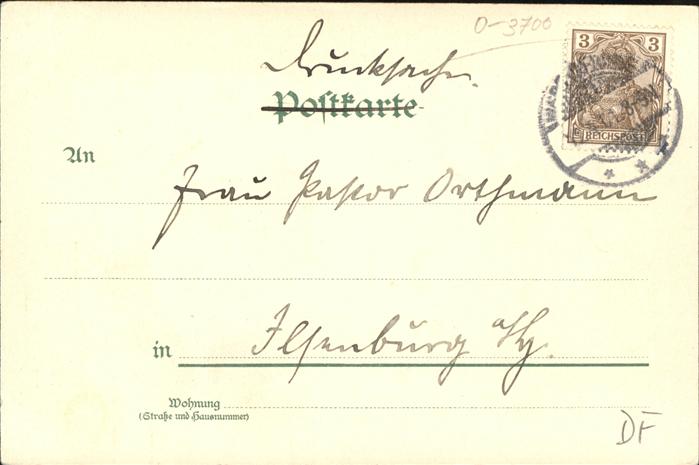 0-3700
Drucksache.
Postkarte
3 3
REICHSPOST
An
Frau Pastor Orthmann
in Ilsenburg a/Hz.
Wohnung
(Straße und Hausnummer)
DF